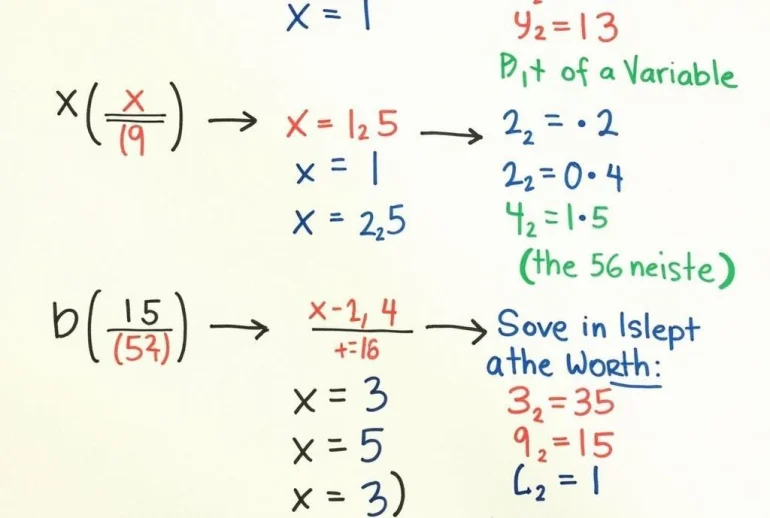 x = 1
y₂ = 13
B,t of a Variable
x(x/(9) → x = 1₂5 → 2₂ = ·2
x = 1
2₂ = 0·4
x = 2₂5
4₂ = 1·5
(the 56 neiste)
b(15/(52)) → x-2, 4/+=16 → Sove in Islept
athe Worth:
x = 3
3₂ = 35
x = 5
9₂ = 15
x = 3)
L₂ = 1